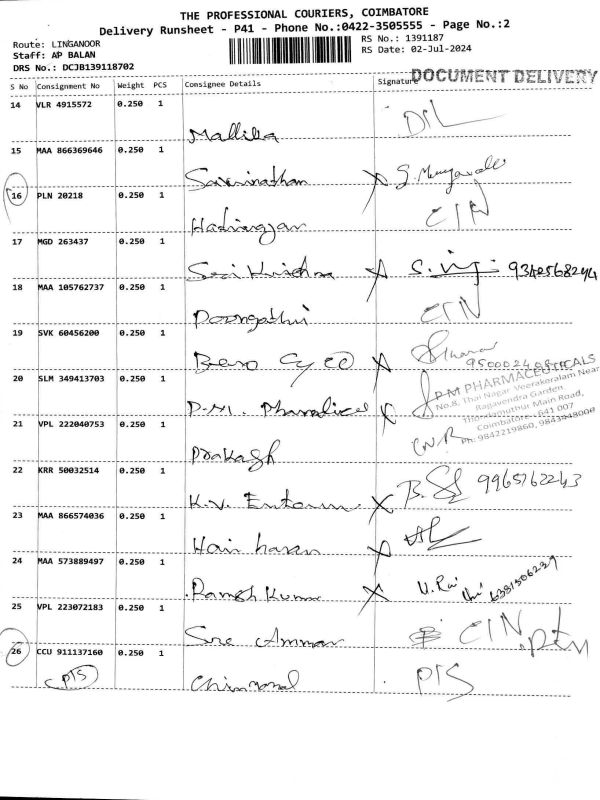 THE PROFESSIONAL COURIERS, COIMBATORE
Delivery Runsheet - P41 - Phone No.:0422-3505555 - Page No.:2
Route: LINGANOOR
RS No.: 1391187
Staff: AP BALAN
RS Date: 02-Jul-2024
DRS No.: DCJB139118702
DOCUMENT DELIVERY
S No Consignment No Weight PCS Consignee Details Signature
14 VLR 4915572 0.250 1
Mallika
15 MAA 866369646 0.250 1
16 PLN 20218 0.250 1
17 MGD 263437 0.250 1
Sri Krishna
18 MAA 105762737 0.250 1
Poongothi
19 SVK 60456200 0.250 1
20 SLM 349413703 0.250 1
P M PHARMACEUTICALS
No.8, Thai Nagar, Veerakeralam Near
Ragavendra Garden
Thondamuthur Main Road,
Coimbatore - 641 007
Ph: 9842219860, 9843948000
21 VPL 222040753 0.250 1
Prakash
22 KRR 50032514 0.250 1
K.V. 9965762243
23 MAA 866574036 0.250 1
Hari haran
24 MAA 573889497 0.250 1
Ramesh Kumar
25 VPL 223072183 0.250 1
Sree Amman
26 CCU 911137160 0.250 1
PTS
PTS